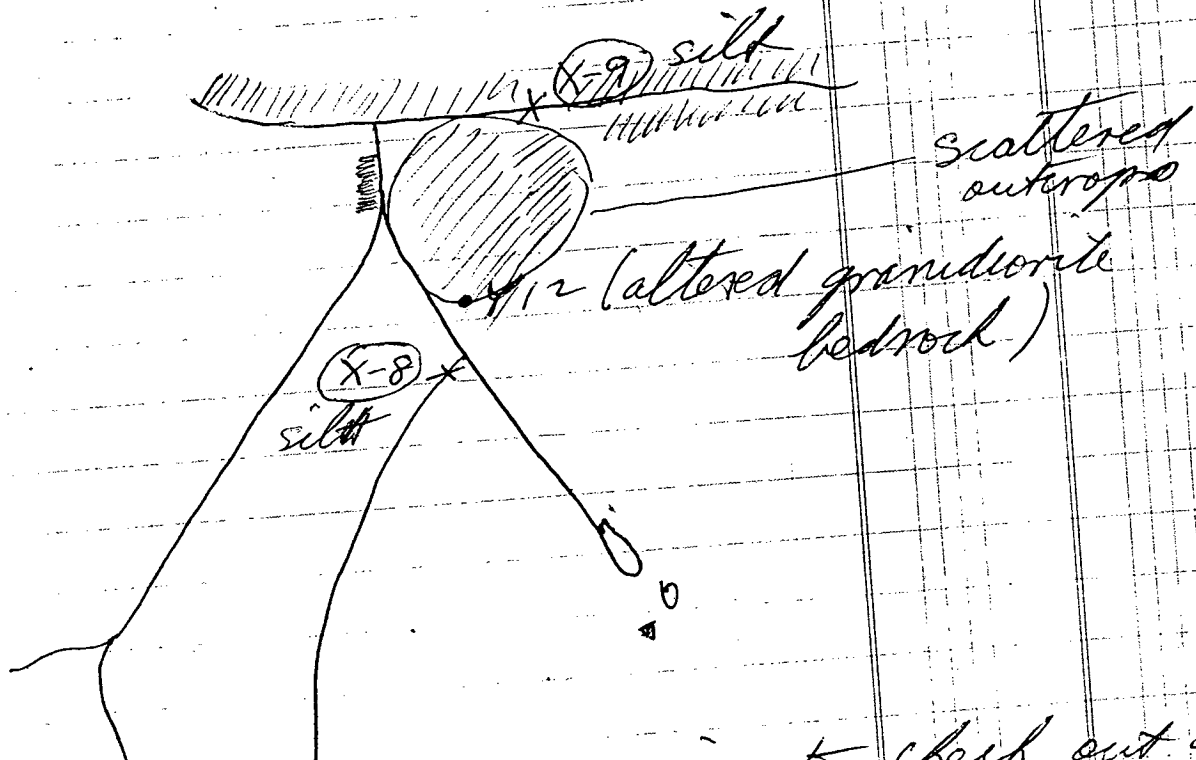 X-9 silt
scattered
outcrops
Y12 (altered granidiorite
bedrock)
X-8
silt
check out